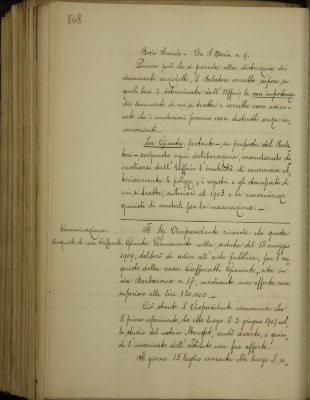 868
Bosio Secondo - Via S. Maria n. 9.
Prima però che si proceda alla distruzione dei
documenti anzidetti, il Relatore vorrebbe sapere su
quali basi è determinata dall'Ufficio la non importanza
dei documenti di cui si tratta e vorrebbe essere assicu-
rato che i medesimi possono essere distrutti senza in-
convenienti.
La Giunta, pertanto - su proposta del Rela-
tore - sospende ogni deliberazione, mandando di
sentirsi dall'Ufficio l'inutilità di conservare ul-
teriormente le polizze, i registri e gli stampati di
cui si tratta, anteriori al 1903 e la convenienza
quindi di venderli per la macerazione.
Comunicazione.
Acquisto di casa Cafferatti.
Il Sig. Vicepresidente ricorda che questa
Giunta Permanente nella seduta del 18 maggio
1909, deliberò di adire all'asta pubblica, per l'ac-
quisto della casa Cafferatti Giacinto, sita in
via Barbaroux n. 17, mediante una offerta non
superiore alle lire 120.000.-
Ciò stante il Vicepresidente comunica che
il primo esperimento, che ebbe luogo il 2 giugno 1909 nel-
lo studio del notaio, andò deserto, e quin-
di l'incaricato dell'Istituto non fece offerte.
Il giorno 15 luglio corrente ebbe luogo il se-